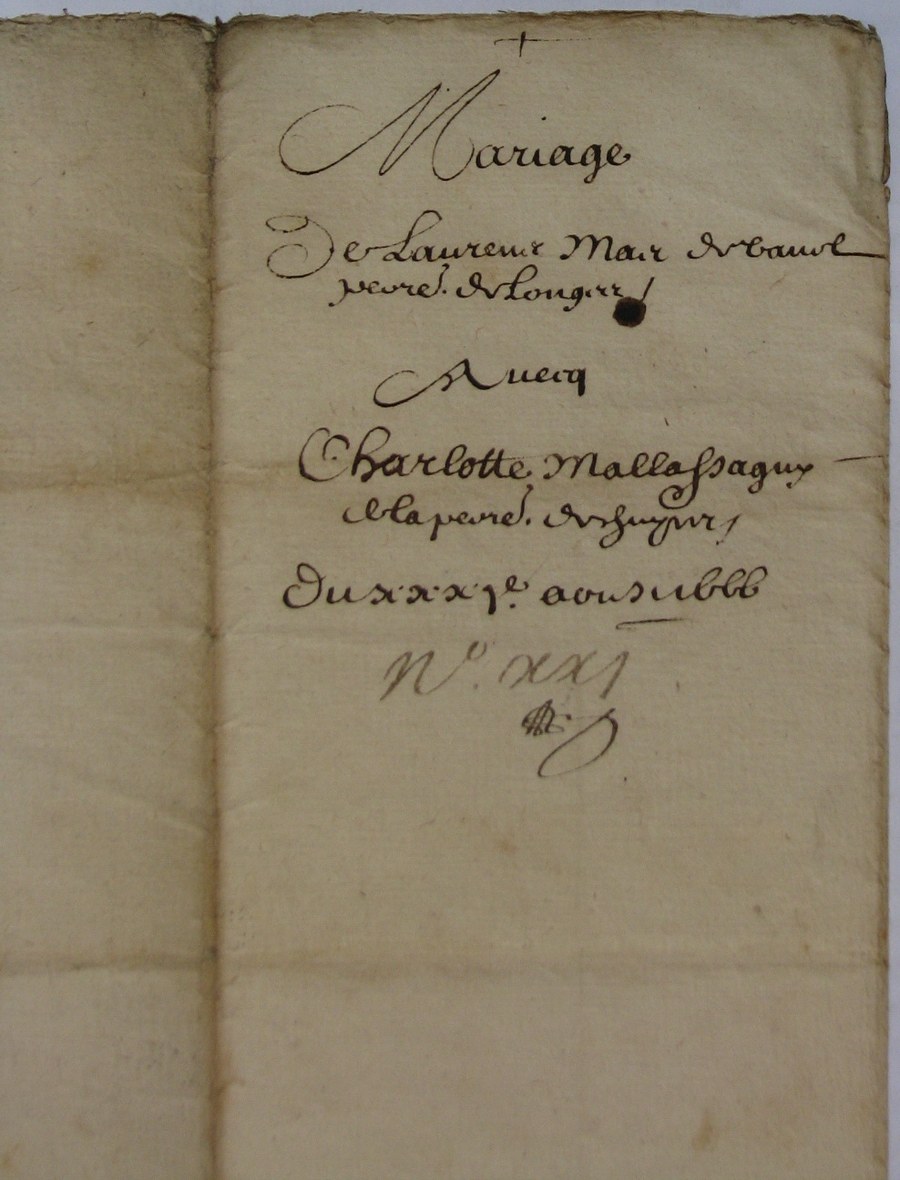 Mariage
De Laurens Mair de bauol
peroe. de Longer
Auecq
Charlotte Mallassaguy
de la peroe. de
Du xxxje. aoust
No. xxj